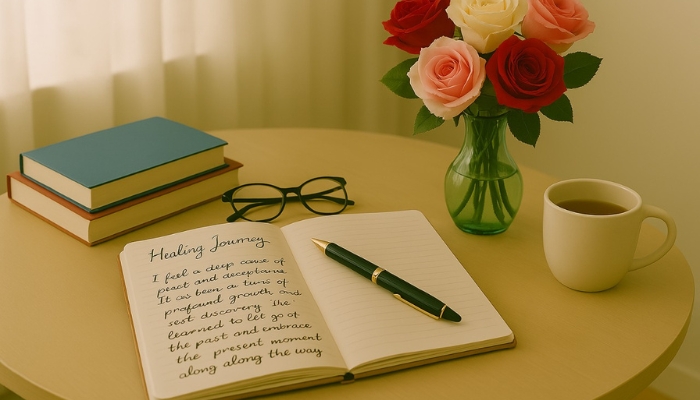 Healing Journey
I feel a deep sense of
peace and deceptance
It as been a turs of
profound growth and
sest discovery The
learned to let go of
the past and embrace
the present moment
along along the way